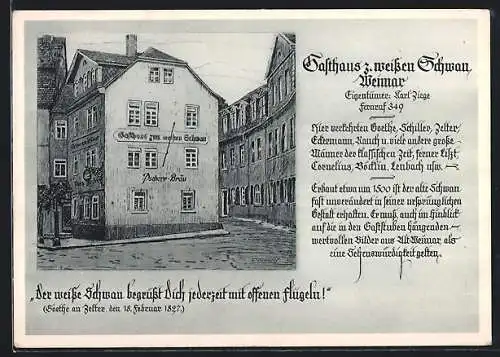 Gasthaus z. weißen Schwan
Weimar
Eigentümer: Karl Ziege
Fernruf 349
Hier verkehrten Goethe, Schiller, Zelter,
Eckermann, Rauch u. viele andere große
Männer der klassischen Zeit, ferner Liszt,
Cornelius, Böcklin, Lenbach usw. —
Erbaut etwa um 1500 ist der alte Schwan
fast unverändert in seiner ursprünglichen
Gestalt erhalten. Er muß, auch im Hinblick
auf die in den Gaststuben hängenden
wertvollen Bilder aus Alt-Weimar als
eine Sehenswürdigkeit gelten.
Gasthaus zum weißen Schwan
Bräu
„Der weiße Schwan begrüßt Dich jederzeit mit offenen Flügeln!“
(Goethe an Zelter, den 18. Februar 1827.)